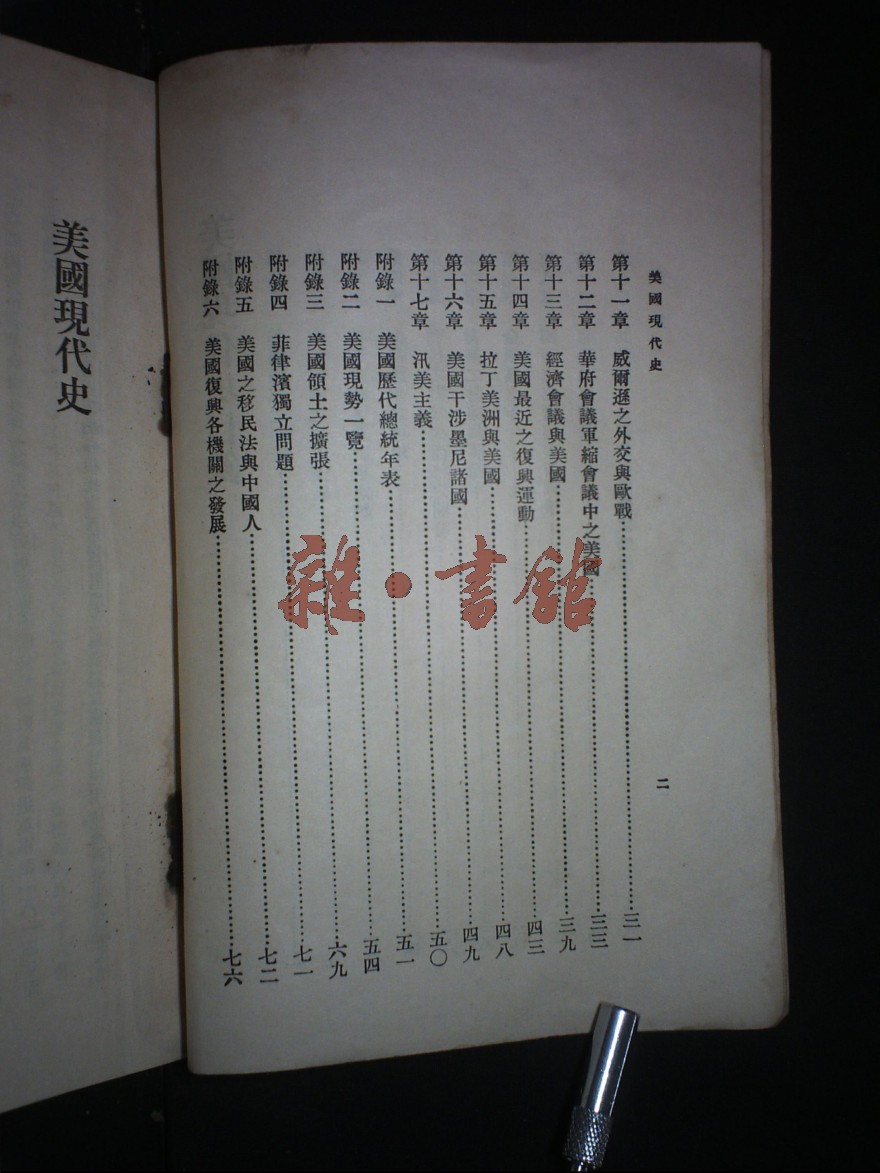 美國現代史
二
第十一章 威爾遜之外交與歐戰……三一
第十二章 華府會議軍縮會議中之美國……三三
第十三章 經濟會議與美國……三九
第十四章 美國最近之復興運動……四三
第十五章 拉丁美洲與美國……四八
第十六章 美國干涉墨尼諸國……四九
第十七章 汎美主義……五〇
附錄一 美國歷代總統年表……五一
附錄二 美國現勢一覽……五四
附錄三 美國領土之擴張……六九
附錄四 菲律濱獨立問題……七一
附錄五 美國之移民法與中國人……七二
附錄六 美國復興各機關之發展……七六
美國現代史
雜·書館